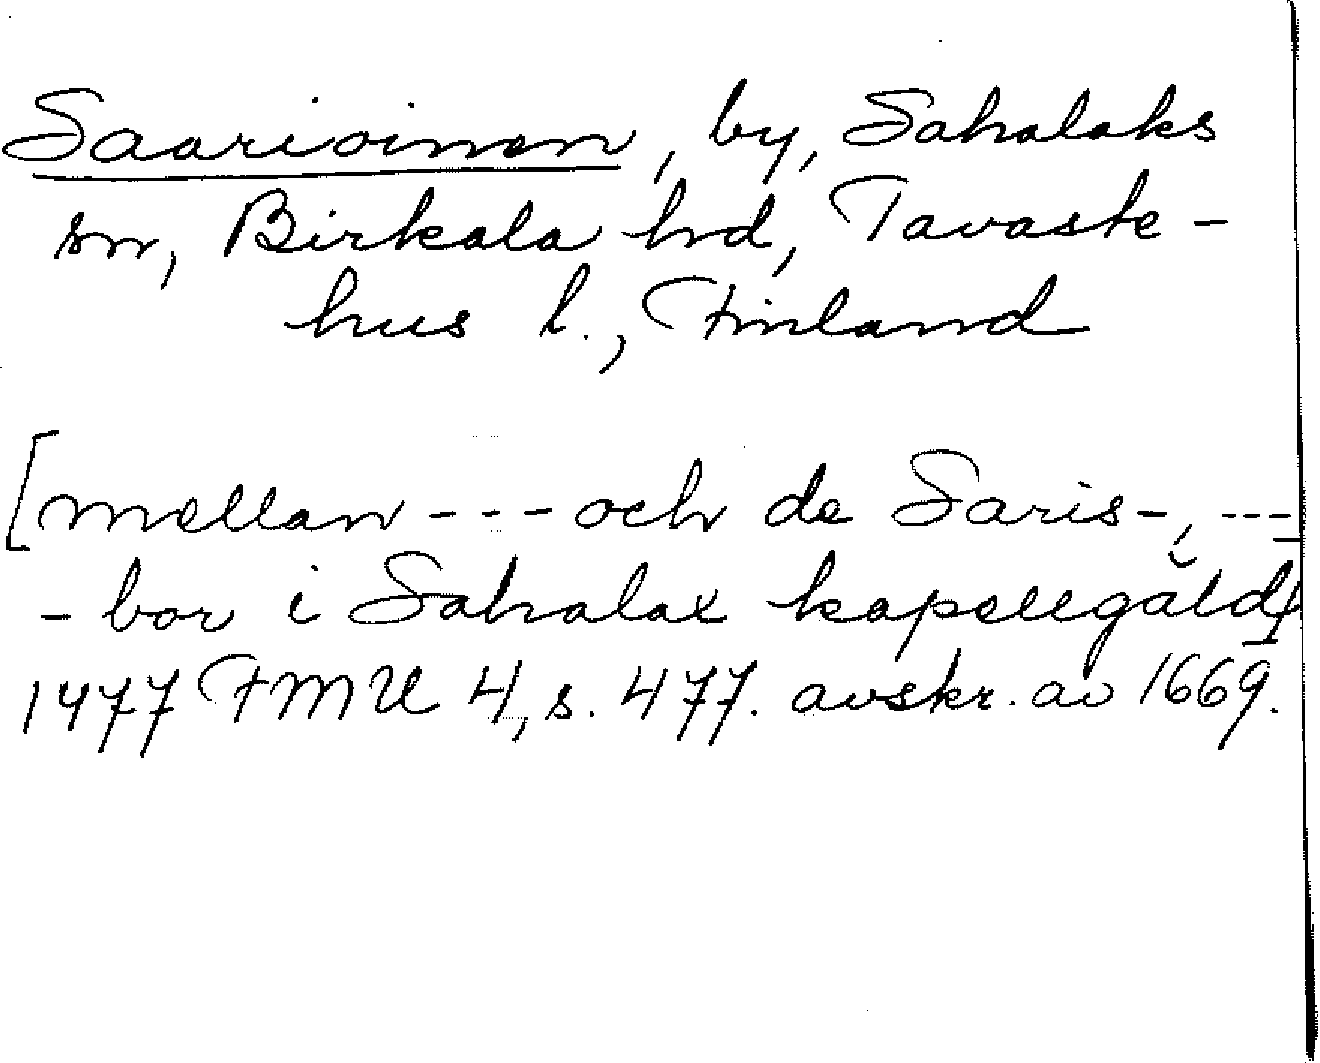 Saarioinen, by, Sahalaks
sn, Birkala hd, Tavaste-
hus l., Finland
[mellan --- och de Saris-, ---
-bor i Sahalax kapellgäld]
1477 FMU 4, s. 477. avskr. av 1669.